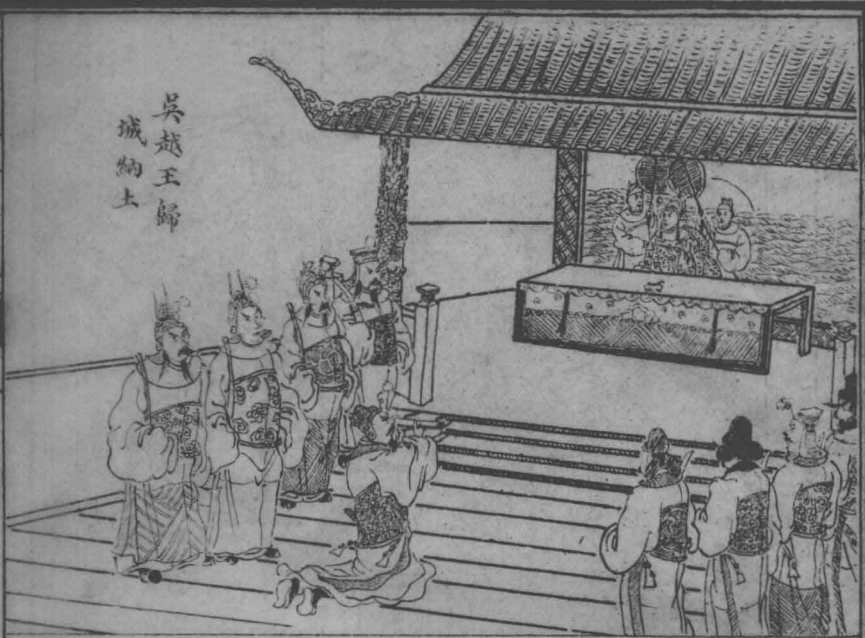 吳越王歸
城納土